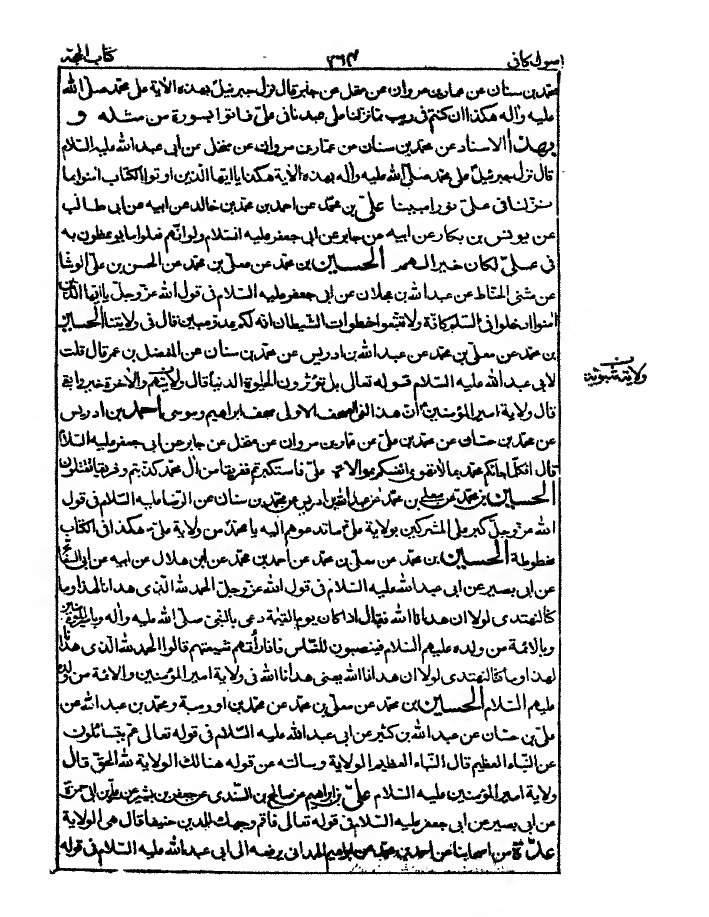 اصول كافى ٢٦٤ كتاب الحجّة
محمّد بن سنان عن عمار بن مروان عن منخل عن جابر قال نزل جبرئيل بهذه الاية على محمّد صلى الله
عليه واله هكذا ان كنتم فى ريب مما نزلنا على عبدنا فى علىّ فاتوا بسورة من مثله و
بهذا الاسناد عن محمّد بن سنان عن عمار بن مروان عن منخل عن ابى عبد الله عليه السّلام
قال نزل جبرئيل على محمّد صلّى الله عليه واله بهذه الاية هكذا يا ايها الّذين اوتوا الكتاب امنوا بما
نزلنا فى علىّ نورا مبينا علىّ بن محمّد عن احمد بن محمّد بن خالد عن ابيه عن ابى طالب
عن يونس بن بكار عن ابيه عن جابر عن ابى جعفر عليه السّلام ولو انّهم فعلوا ما يوعظون به
فى علىّ لكان خيرا لهم الحسين بن محمّد عن معلى بن محمّد عن الحسن بن علىّ الوشا
عن مثنى الحناط عن عبد الله بن عجلان عن ابى جعفر عليه السّلام فى قول الله عزّ وجلّ يا ايها الّذين
امنوا ادخلوا فى السلم كافة ولا تتبعوا خطوات الشيطان انه لكم عدوّ مبين قال فى ولايتنا الحسين
بن محمّد عن معلى بن محمّد عن عبد الله بن ادريس عن محمّد بن سنان عن المفضل بن عمر قال قلت
لابى عبد الله عليه السّلام قوله تعالى بل تؤثرون الحيوة الدنيا قال ولايتهم والاخرة خير وابقى
قال ولاية امير المؤمنينؑ ان هذا لفى الصحف الاولى صحف ابراهيم وموسى احمد بن ادريس
عن محمّد بن حسان عن محمّد بن علىّ عن عمار بن مروان عن منخل عن جابر عن ابى جعفر عليه السّلام
قال افكلّما جاءكم محمّد بما لا تهوى انفسكم بموالاة علىّ فاستكبرتم ففريقا من ال محمّد كذبتم وفريقا تقتلون
الحسين بن محمّد عن معلى بن محمّد عن عبد الله بن ادريس عن محمّد بن سنان عن الرضا عليه السّلام فى قول
الله عزّ وجلّ كبر على المشركين بولاية علىّ ما تدعوهم اليه يا محمّد من ولاية علىّ هكذا فى الكتاب
مخطوطة الحسين بن محمّد عن معلى بن محمّد عن احمد بن محمّد عن ابن هلال عن ابيه عن ابى السفاتج
عن ابى بصير عن ابى عبد الله عليه السّلام فى قول الله عزّ وجلّ الحمد لله الّذى هدانا لهذا وما
كنا لنهتدى لولا ان هدانا الله فقال اذا كان يوم القيمة دعى بالنبىّ صلّى الله عليه واله وبامير المؤمنين
وبالائمة من ولده عليهم السّلام فينصبون للنّاس فاذا راتهم شيعتهم قالوا الحمد لله الّذى هدانا
لهذا وما كنا لنهتدى لولا ان هدانا الله يعنى هدانا الله فى ولاية امير المؤمنين والائمة من ولده
عليهم السّلام الحسين بن محمّد عن معلى بن محمّد عن محمّد بن اورمة ومحمّد بن عبد الله عن
علىّ بن حسان عن عبد الله بن كثير عن ابى عبد الله عليه السّلام فى قوله تعالى عم يتسائلون
عن النّباء العظيم قال النّباء العظيم الولاية وسالته عن قوله هنالك الولاية لله الحقّ قال
ولاية امير المؤمنين عليه السّلام علىّ بن ابراهيم عن صالح بن السّندى عن جعفر بن بشير عن علىّ بن ابى حمزة
عن ابى بصير عن ابى جعفر عليه السّلام فى قوله تعالى فاقم وجهك للدين حنيفا قال هى الولاية
عدّة من اصحابنا عن احمد بن محمّد عن ابراهيم الهمدانى يرفعه الى ابى عبد الله عليه السّلام فى قوله